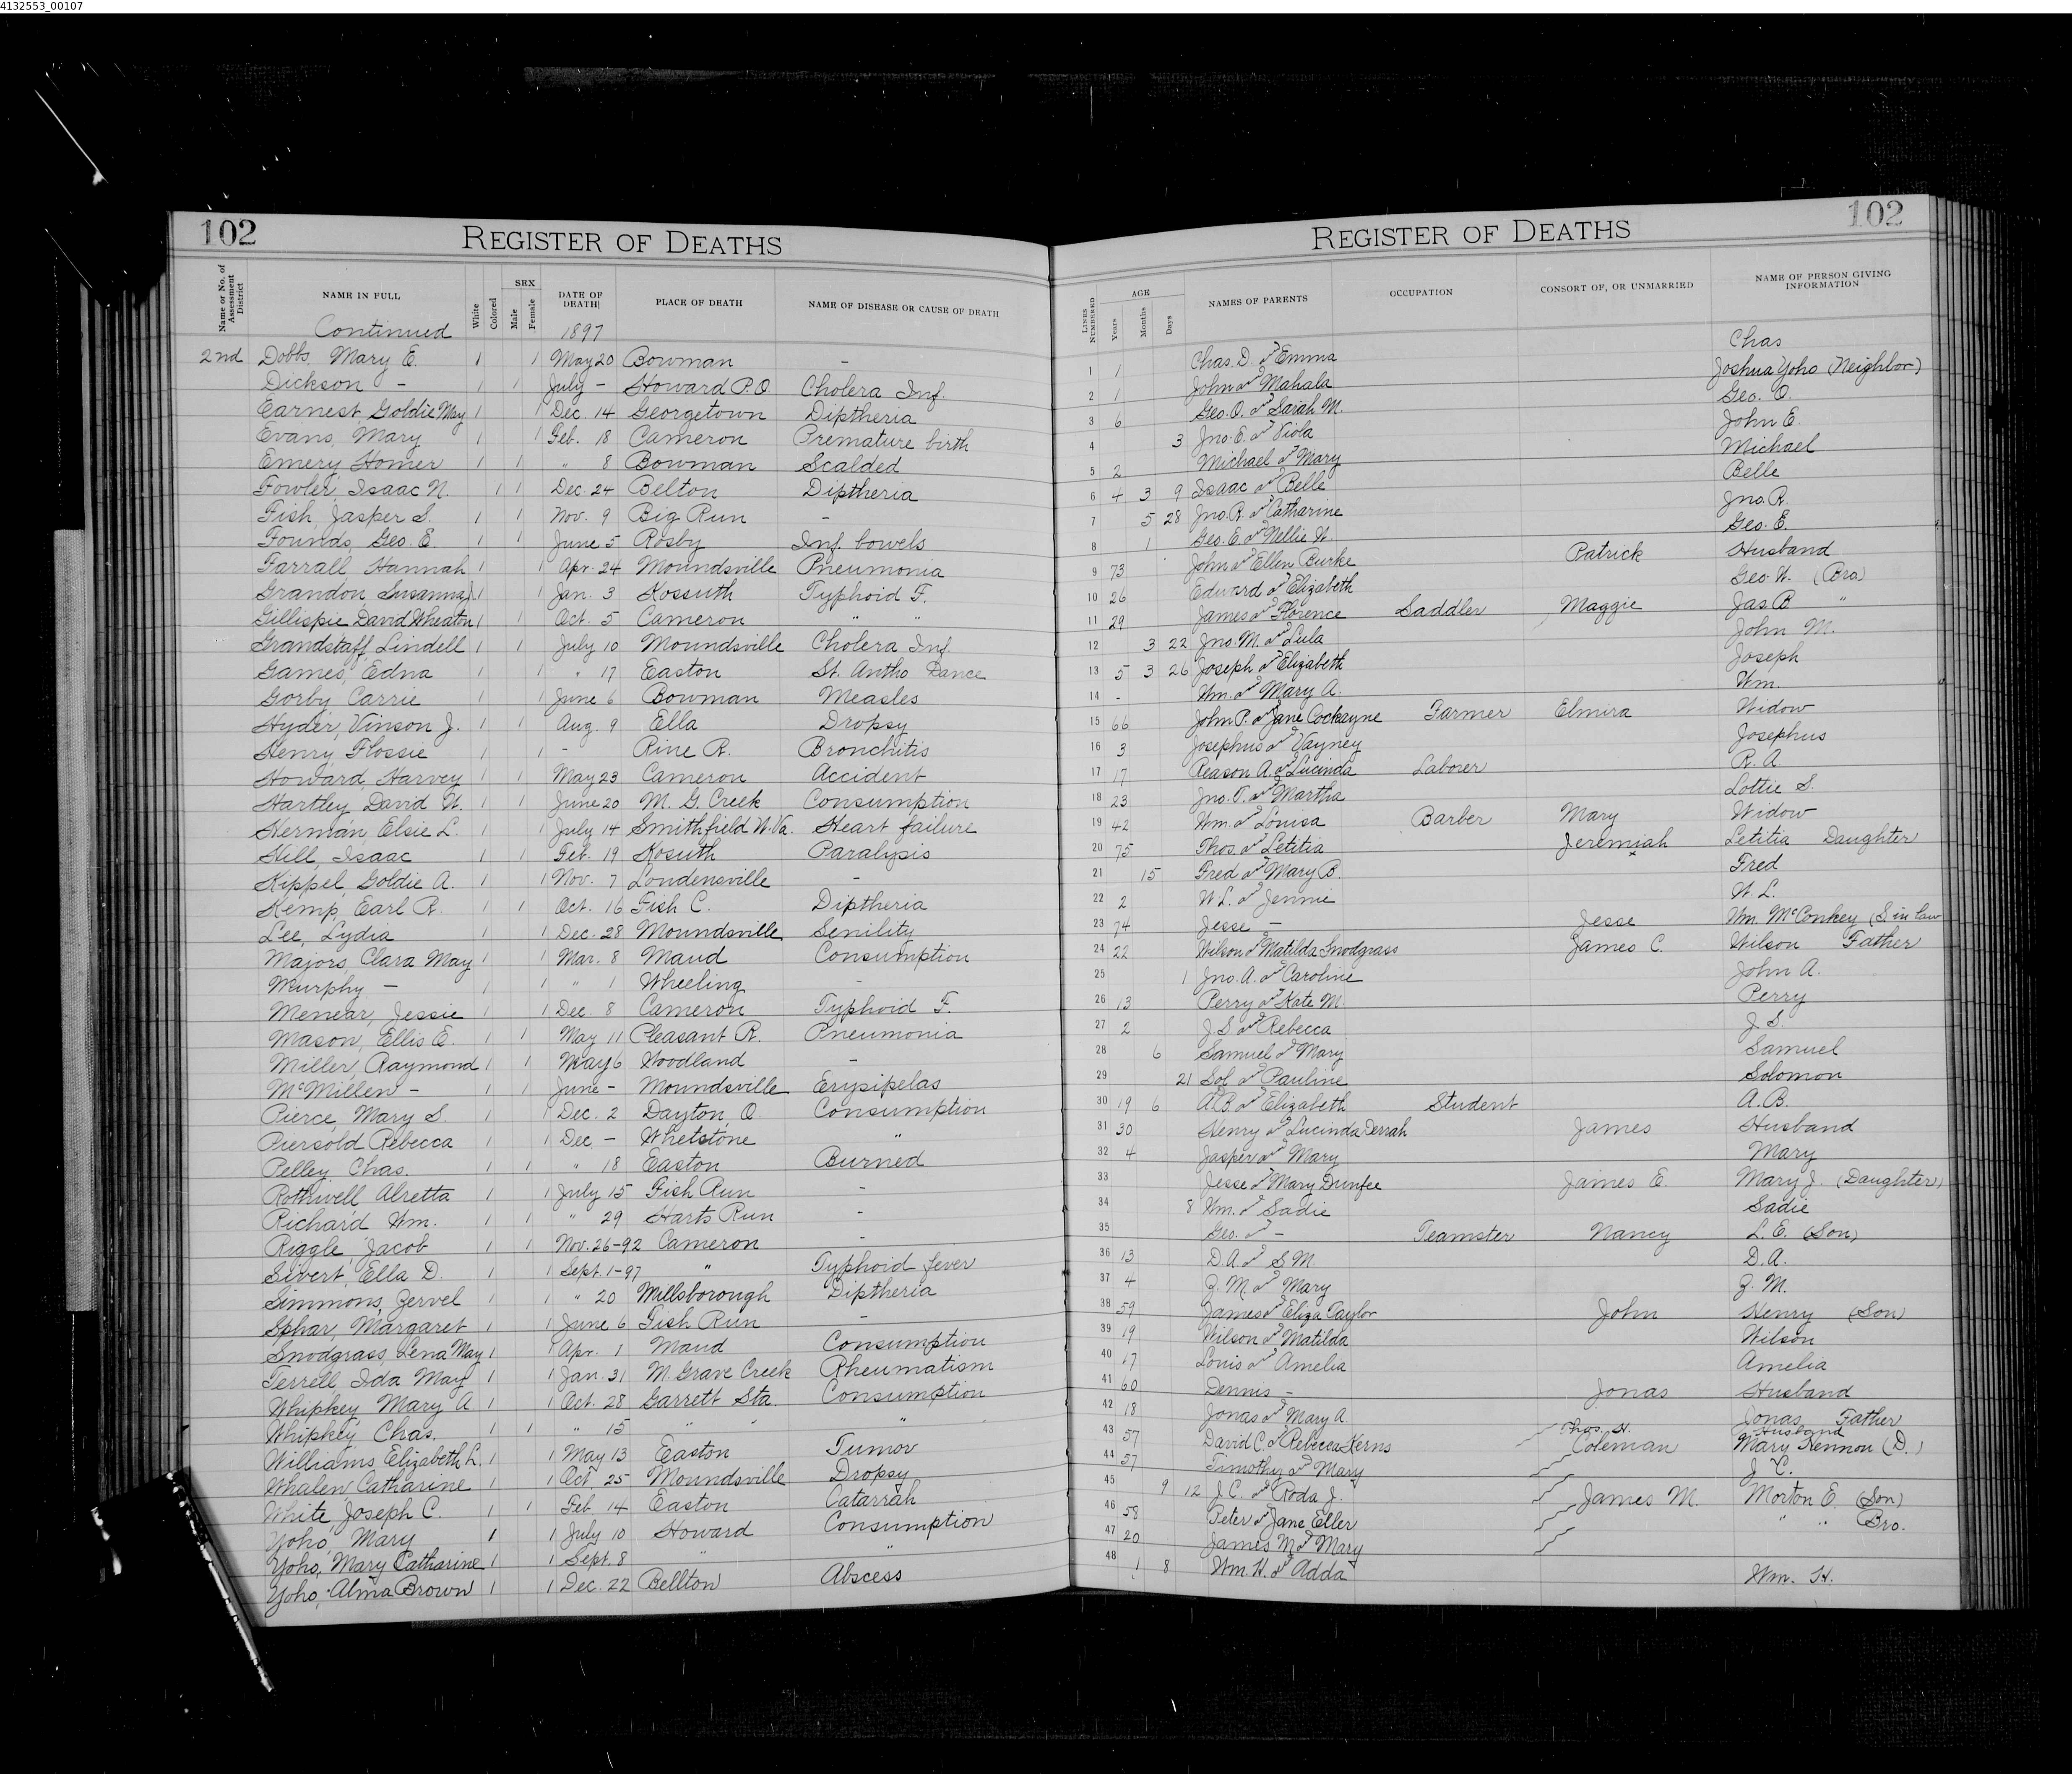 4132553_00107
102 REGISTER OF DEATHS
Name or No. of Assessment District NAME IN FULL White Colored SEX Male Female DATE OF DEATH PLACE OF DEATH NAME OF DISEASE OR CAUSE OF DEATH
Continued 1897
2nd Dobbs, Mary E. 1 1 May 20 Bowman -
Dickson - 1 1 July - Howard P.O Cholera Inf.
Earnest, Goldie May 1 1 Dec. 14 Georgetown Diptheria
Evans, Mary 1 1 Feb. 18 Cameron Premature birth
Emery Homer 1 1 " 8 Bowman Scalded
Fowler, Isaac N. 1 1 Dec. 24 Belton Diptheria
Fish, Jasper S. 1 1 Nov. 9 Big Run -
Founds, Geo. E. 1 1 June 5 Rosby Inf. bowels
Farrall Hannah 1 1 Apr. 24 Moundsville Pneumonia
Grandon Susannah 1 1 Jan. 3 Kossuth Typhoid F.
Gillispie David Wheaton 1 1 Oct. 5 Cameron " "
Grandstaff Lindell 1 1 July 10 Moundsville Cholera Inf.
Games, Edna 1 1 " 17 Easton St. Antho Dance
Gorby Carrie 1 1 June 6 Bowman Measles
Hyder, Vinson J. 1 1 Aug. 9 Ella Dropsy
Henry, Flossie 1 1 - Rine R. Bronchitis
Howard, Harvey 1 1 May 23 Cameron Accident
Hartley, David W. 1 1 June 20 M. G. Creek Consumption
Herman Elsie L. 1 1 July 14 Smithfield W.Va. Heart failure
Hill, Isaac 1 1 Feb. 19 Kosuth Paralysis
Kippel, Goldie A. 1 1 Nov. 7 Loudensville -
Kemp, Earl R. 1 1 Oct. 16 Fish C. Diptheria
Lee, Lydia 1 1 Dec. 28 Moundsville Senility
Majors, Clara May 1 1 Mar. 8 Maud Consumption
Murphy - 1 1 " 1 Wheeling -
Menear, Jessie 1 1 Dec. 8 Cameron Typhoid F.
Mason, Ellis E. 1 1 May 11 Pleasant R. Pneumonia
Miller, Raymond 1 1 May 6 Woodland -
McMillen - 1 1 June - Moundsville Erysipelas
Pierce, Mary S. 1 1 Dec. 2 Dayton, O. Consumption
Piersold Rebecca 1 1 Dec - Whetstone "
Pelley, Chas. 1 1 " 18 Easton Burned
Rothwell Alretta 1 1 July 15 Fish Run -
Richard Wm. 1 1 " 29 Harts Run -
Riggle, Jacob 1 1 Nov. 26-92 Cameron -
Sivert, Ella D. 1 1 Sept. 1-97 " Typhoid fever
Simmons, Zervel 1 1 " 20 Millsborough Diptheria
Sphar, Margaret 1 1 June 6 Fish Run -
Snodgrass, Lena May 1 1 Apr. 1 Maud Consumption
Terrell Ida May 1 1 Jan. 31 M. Grave Creek Rheumatism
Whipkey Mary A 1 1 Oct. 28 Garrett Sta. Consumption
Whipkey Chas. 1 1 " 15 " " "
Williams Elizabeth L. 1 1 May 13 Easton Tumor
Whalen Catharine 1 1 Oct 25 Moundsville Dropsy
White, Joseph C. 1 1 Feb 14 Easton Catarrah
Yoho, Mary 1 1 July 10 Howard Consumption
Yoho, Mary Catharine 1 1 Sept. 8 " "
Yoho, Alma Brown 1 1 Dec. 22 Bellton Abscess
REGISTER OF DEATHS 102
LINES NUMBERED AGE Years Months Days NAMES OF PARENTS OCCUPATION CONSORT OF, OR UNMARRIED NAME OF PERSON GIVING INFORMATION
1 1 Chas. D. & Emma Chas
2 1 John & Mahala Joshua Yoho (Neighbor)
3 6 Geo. O. & Sarah M. Geo. O.
4 3 Jno. E. & Viola John E.
5 2 Michael & Mary Michael
6 4 3 9 Isaac & Belle Belle
7 5 28 Jno. R. & Catharine Jno. R.
8 1 Geo. E. & Nellie W. Geo. E.
9 73 John & Ellen Burke Patrick Husband
10 26 Edward & Elizabeth Geo. W. (Bro)
11 29 James & Florence Saddler Maggie Jas B "
12 3 22 Jno. M. & Lula John M.
13 5 3 26 Joseph & Elizabeth Joseph
14 - Wm. & Mary A. Wm.
15 66 John P. & Jane Cockayne Farmer Elmira Widow
16 3 Josephus & Vayney Josephus
17 17 Reason A. & Lucinda Laborer R. A.
18 23 Jno. T. & Martha Lottie S.
19 42 Wm. & Louisa Barber Mary Widow
20 75 Thos. & Letitia Jeremiah Letitia Daughter
21 15 Fred & Mary B. Fred
22 2 W L. & Jennie W. L.
23 74 Jesse - Jesse Wm. McConkey (S in law
24 22 Wilson & Matilda Snodgrass James C. Wilson Father
25 1 Jno. A. & Caroline John A.
26 13 Perry & Kate M. Perry
27 2 J. S & Rebecca J. S.
28 6 Samuel & Mary Samuel
29 21 Sol & Pauline Solomon
30 19 6 A. B. & Elizabeth Student A. B.
31 30 Henry & Lucinda Derrah James Husband
32 4 Jasper & Mary Mary
33 Jesse & Mary Dunfee James E. Mary J. (Daughter)
34 8 Wm. & Sadie Sadie
35 Geo. & - Teamster Nancy L. E. (Son)
36 13 D. A. & S M. D. A.
37 4 Z. M. & Mary Z. M.
38 59 James & Eliza Taylor John Henry (Son)
39 19 Wilson & Matilda Wilson
40 17 Louis & Amelia Amelia
41 60 Dennis - Jonas Husband
42 18 Jonas & Mary A. Jonas Father
43 57 David C. & Rebecca Kerns Thos. H. Husband
44 57 Timothy & Mary Coleman Mary Kennon (D.)
45 9 12 J. C. & Roda J. J. C.
46 58 Peter & Jane Eller James M. Morton E. (Son)
47 20 James M & Mary " " Bro.
48 1 8 Wm. H. & Adda Wm. H.